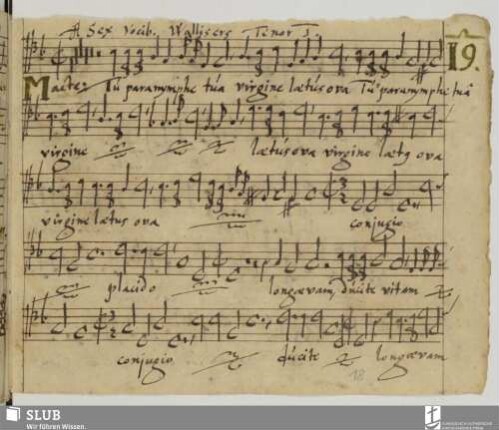 A Sex vocib. Wallisers Tenor I.
19.
Macte Tu paranymphe tua virgine lætus ova Tu paranymphe tua
virgine lætus ova virgine lætus ova
virgine lætus ova conjugio
placido longævam, ducite vitam
conjugio ducite longævam
18
SLUB
Wir führen Wissen.